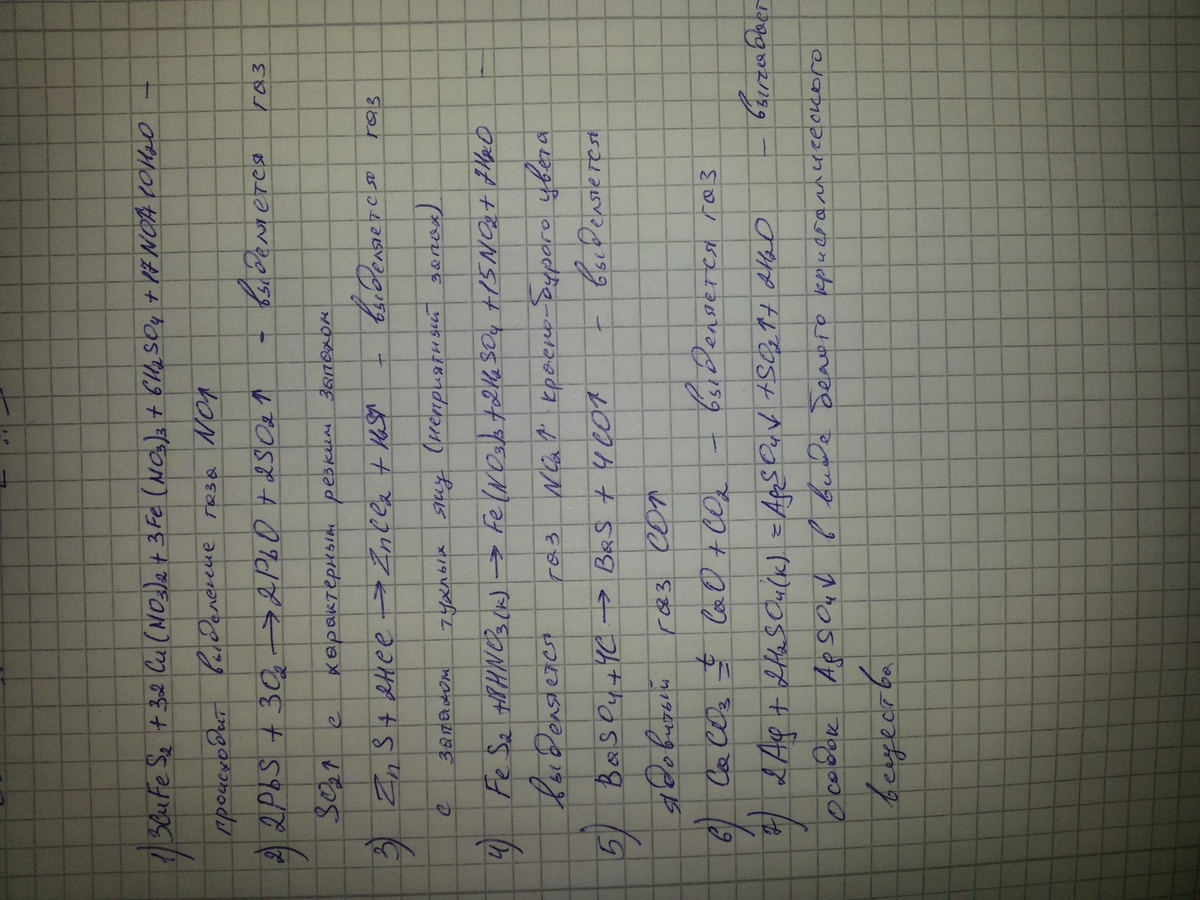 1) 3CuFeS2 + 32 Cu(NO3)2 + 3Fe(NO3)3 + 6H2SO4 + 17NO↑ + 10H2O –
происходит выделение газа NO↑
2) 2PbS + 3O2 → 2PbO + 2SO2↑ - выделяется газ
SO2↑ с характерным резким запахом
3) ZnS + 2HCl → ZnCl2 + H2S↑ - выделяется газ
с запахом тухлых яиц (неприятный запах)
4) FeS2 + 18HNO3(к) → Fe(NO3)3 + 2H2SO4 + 15NO2 + 7H2O –
выделяется газ NO2↑ красно-бурого цвета
5) BaSO4 + 4C → BaS + 4CO↑ - выделяется
ядовитый газ CO↑
6) CaCO3 t= CaO + CO2 – выделяется газ
7) 2Ag + 2H2SO4(к) = Ag2SO4↓ + SO2↑ + 2H2O – выпадает
осадок AgSO4↓ в виде белого кристаллического
вещества